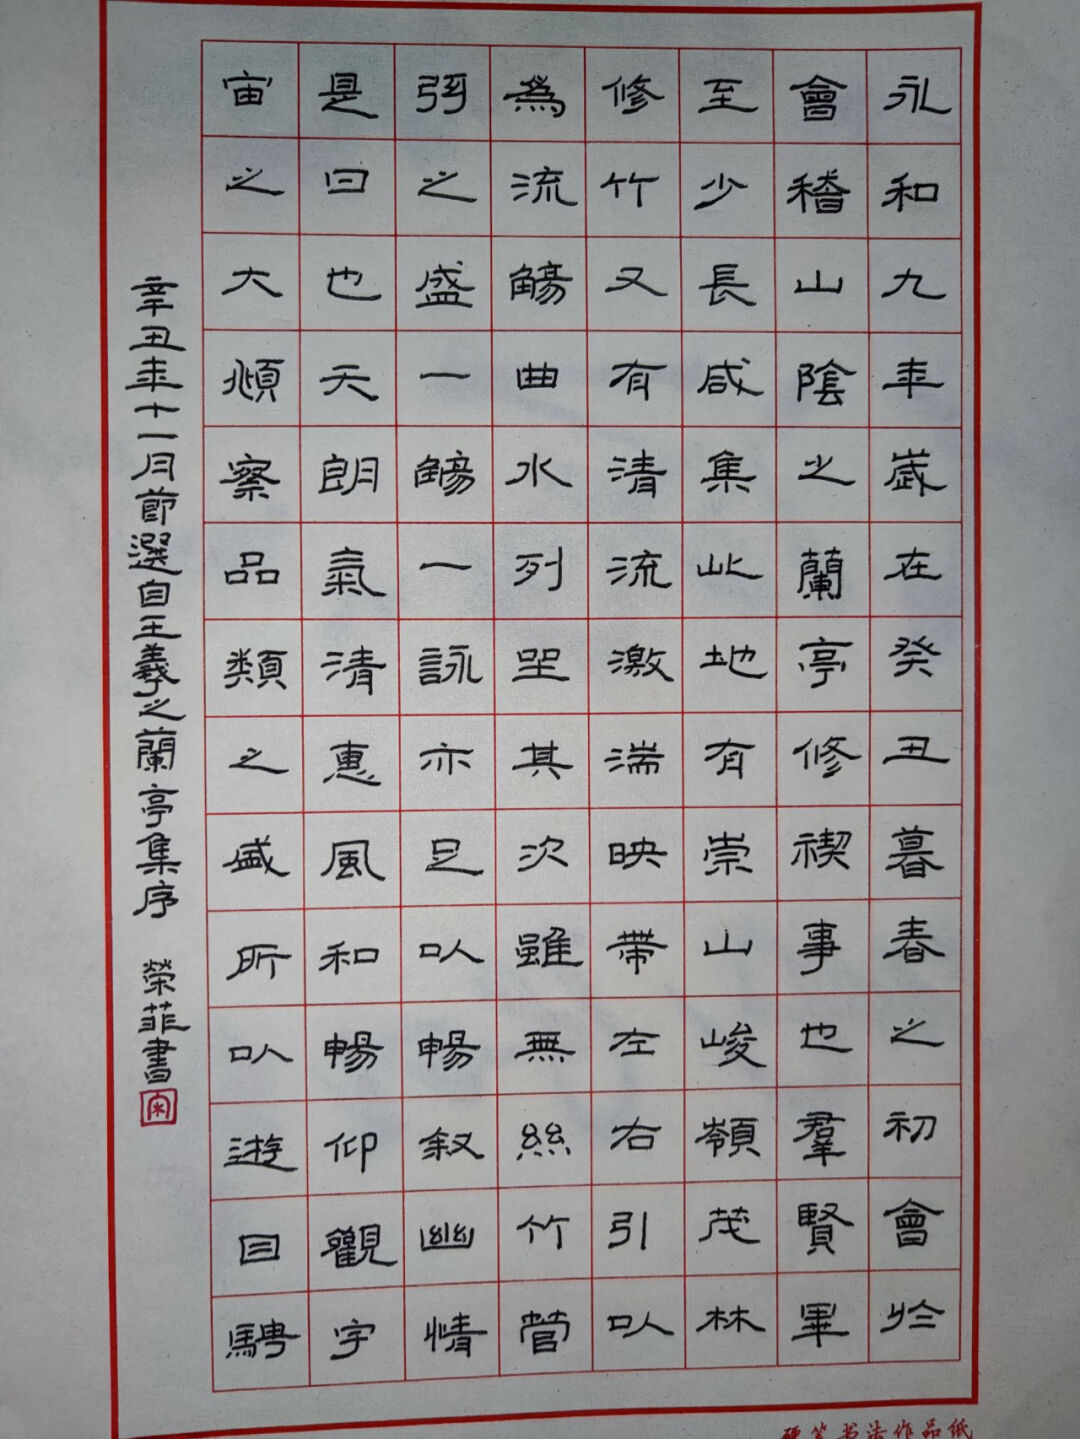 永和九年歲在癸丑暮春之初會於
會稽山陰之蘭亭修禊事也羣賢畢
至少長咸集此地有崇山峻嶺茂林
修竹又有清流激湍映帶左右引以
爲流觴曲水列坐其次雖無絲竹管
弦之盛一觴一詠亦足以暢叙幽情
是日也天朗氣清惠風和暢仰觀宇
宙之大頫察品類之盛所以遊目騁
辛丑年十一月節選自王羲之蘭亭集序 榮菲書
宋
硬笔书法作品纸